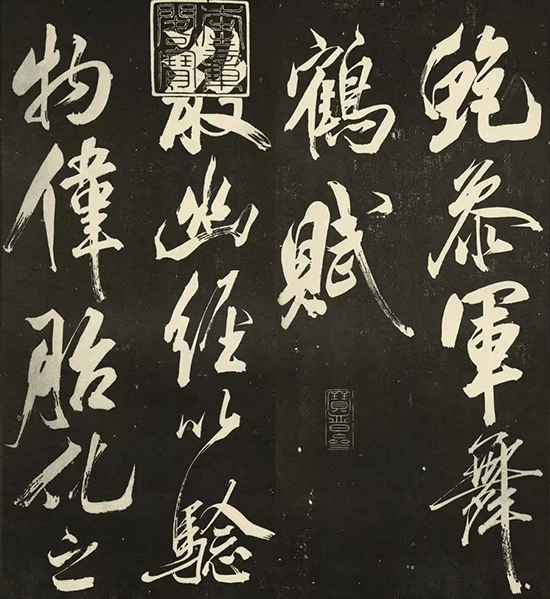 鮑參軍舞
鶴賦
散幽經以驗
物偉胎化之
寶晉齋